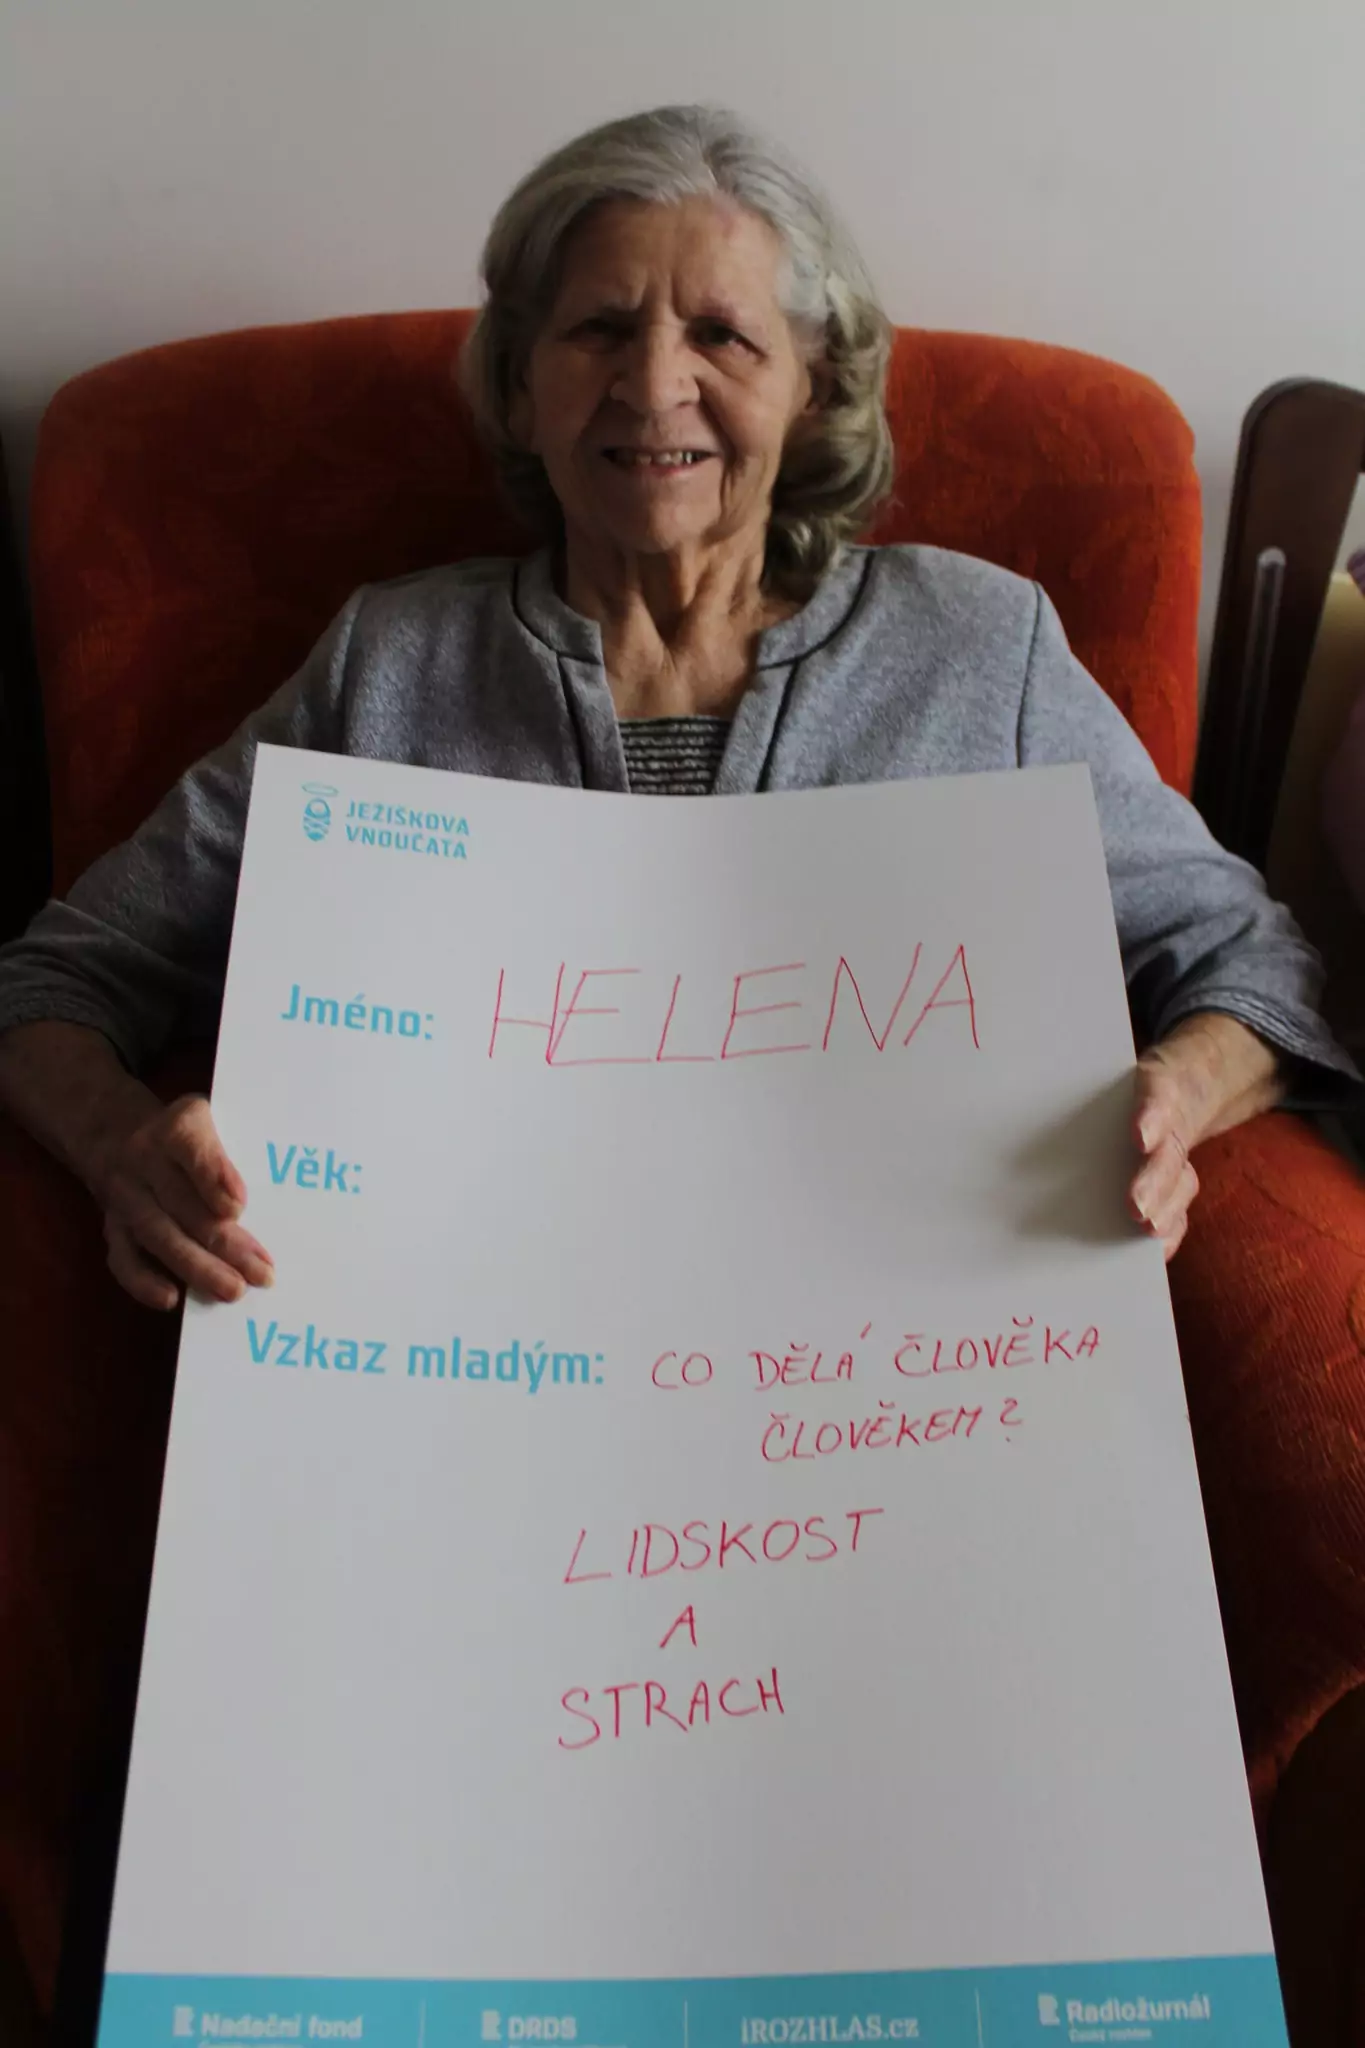 JEŽÍŠKOVA
VNOUČATA
Jméno: HELENA
Věk:
Vzkaz mladým: CO DĚLÁ ČLOVĚKA
ČLOVĚKEM?
LIDSKOST
A
STRACH
Nadační fond DRDS iROZHLAS.cz Radiožurnál